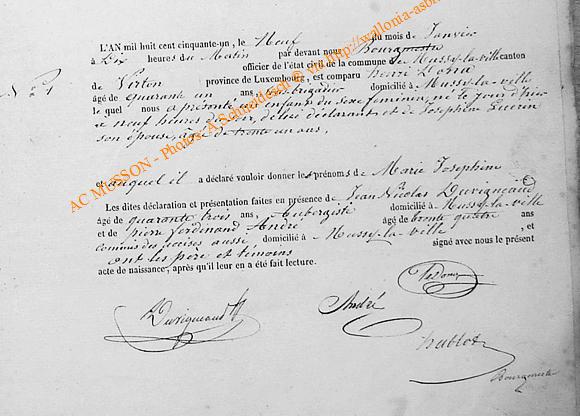 L'AN mil huit cent cinquante-un, le Neuf du mois de Janvier
à Dix heures du Matin par devant nous Bourgmestre
officier de l'état civil de la commune de Mussy-la-ville canton
N° 1
de Virton province de Luxembourg, est comparu henri
âgé de quarante un ans brigadier domicilié à Mussy-la-ville
lequel nous a présenté un enfant du sexe féminin, né le jour d'hier
à neuf heures du soir, de lui déclarant et de Josephine Guerin
son épouse, âgée de trente un ans,
et auquel il a déclaré vouloir donner les prénoms de Marie Josephine
Les dites déclaration et présentation faites en présence de Jean Nicolas Duvigneaud
âgé de quarante trois ans, Aubergiste domicilié à Mussy-la-ville
et de pierre ferdinand André âgé de trente quatre ans
commis des accises aussi domicilié à Mussy-la-ville
ont les père et témoins signé avec nous le présent
acte de naissance, après qu'il leur en a été fait lecture.
Duvigneaud
André
hablot
Bourgmestre
AC MUSSON - Photos: A Schmidesch et via http://wallonia-asb